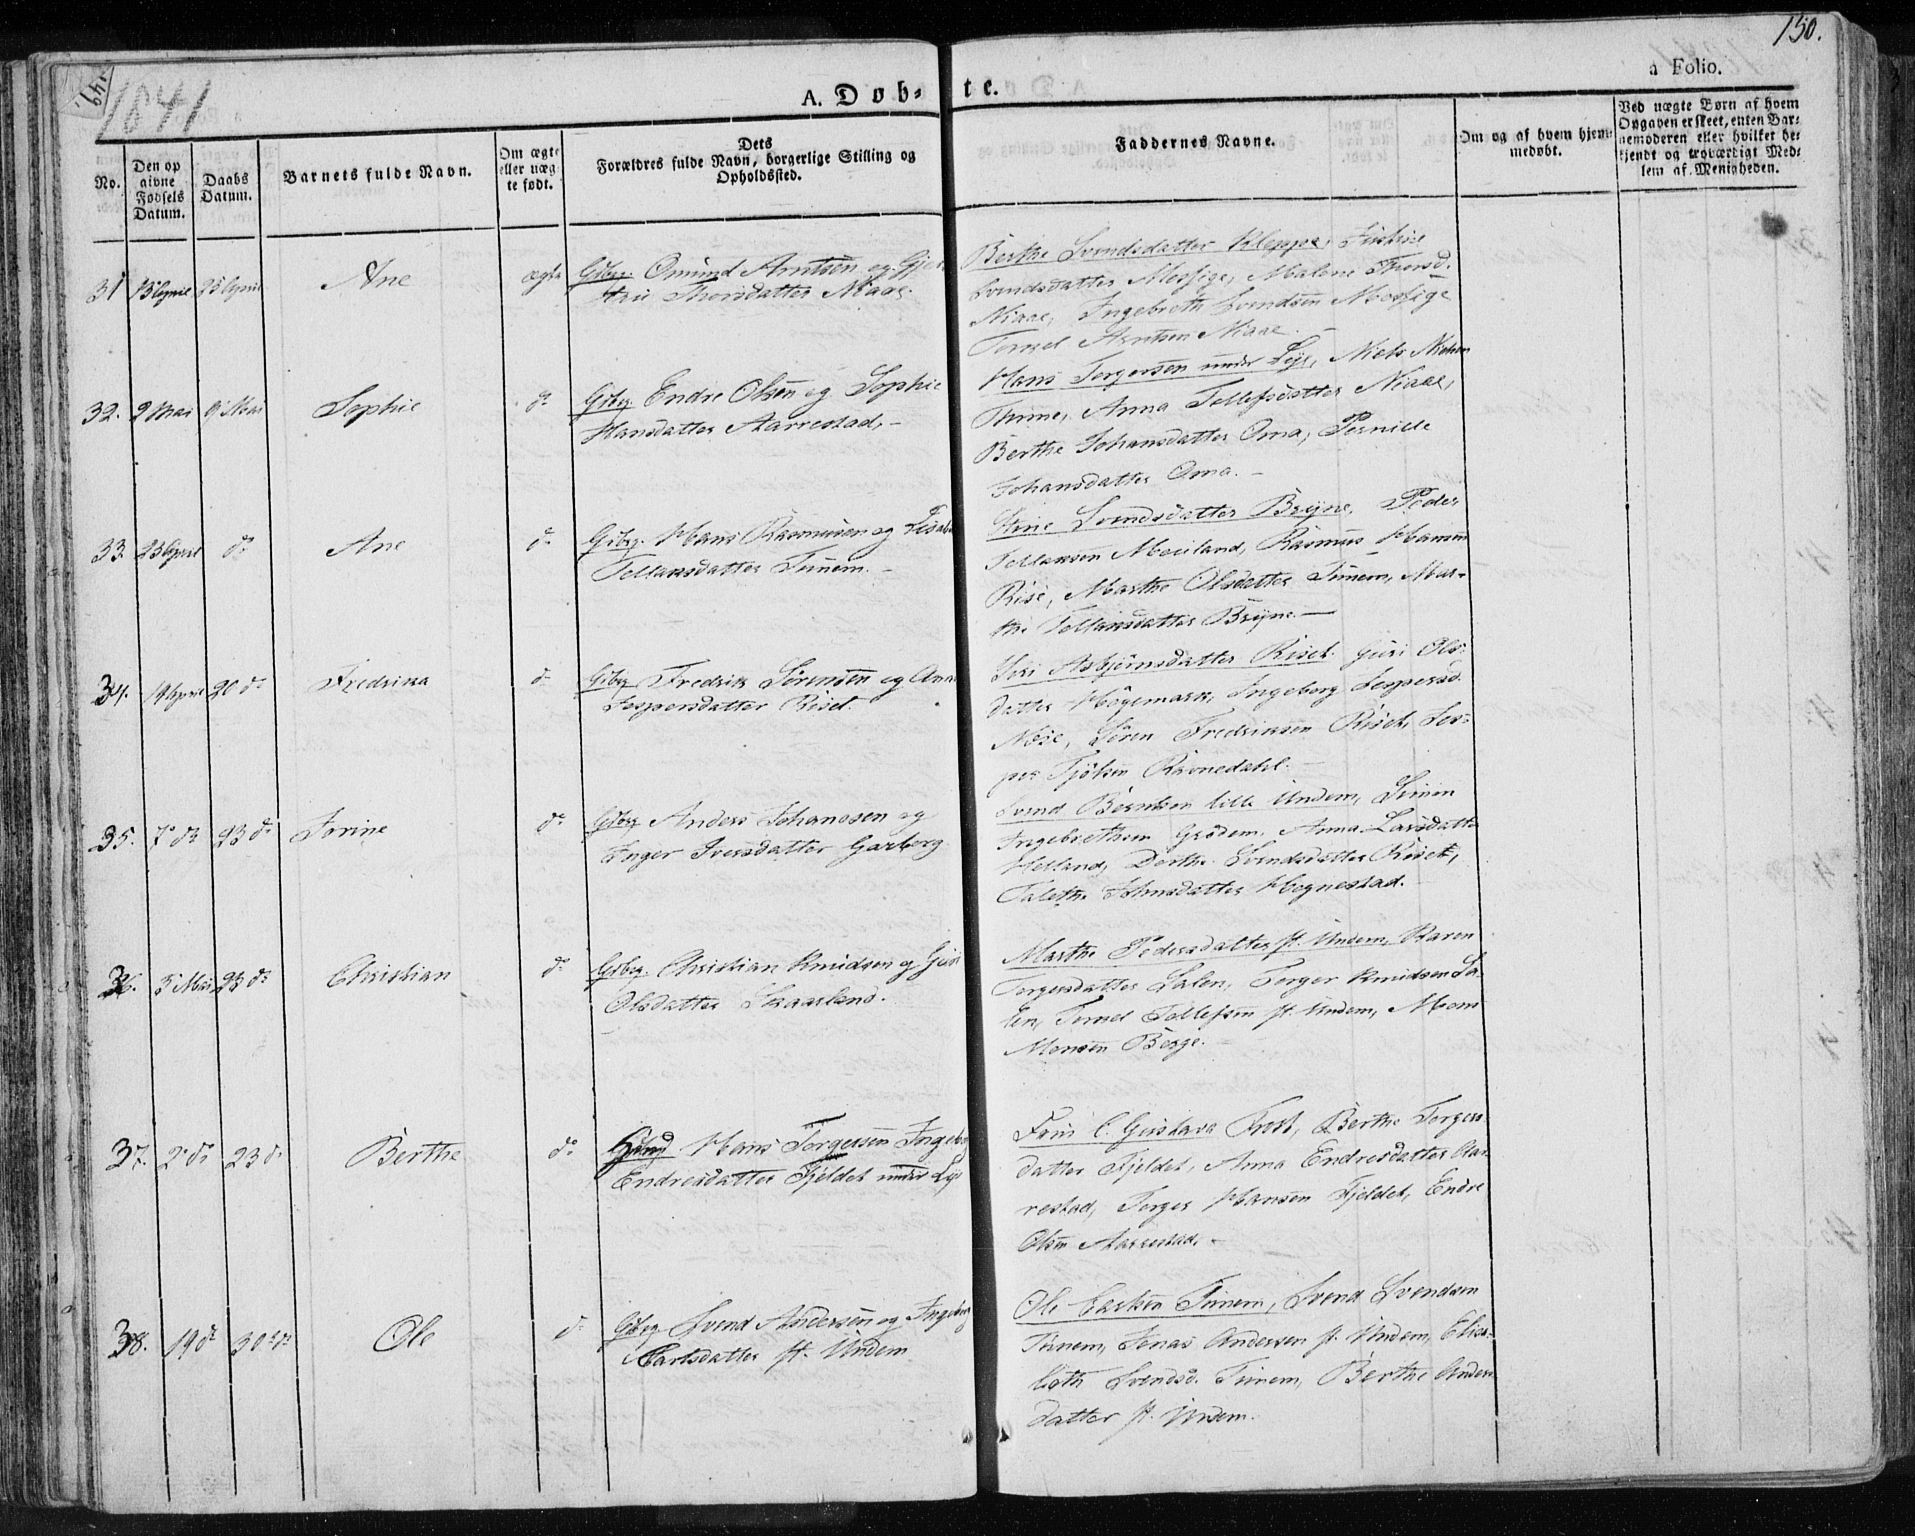 149.
1841
150.
A. Døb-
te.
a Folio.
No.
Den op
givne
Fødsels
Datum.
Daabs
Datum.
Barnets fulde Navn.
Om ægte
eller uæg
te født.
Dets
Forældres fulde Navn, borgerlige Stilling og
Opholdssted.
Faddernes Navne.
Om og af hvem hjemme
medøbt.
Ved uægte Børn af hvem
Opgaven er skeet, enten Bar-
nemoderen eller hvilket be-
kjendt og troværdigt Med-
lem af Menigheden.
31 13 April 25 April Ane ægte Gbrg. Omund Arntsen og
Thorsdatter Niaae.
Berthe Svendsdatter Kleppe,
Svendsdatter Mossige, Malene Thorsd.
Niaae, Ingebreth Svendsen Mossige
Tornel Arntsen Niaae.
32. 2 Mai 9 Mai Sophie do Gbrg. Endre Olsen og Sophie
Hansdatter Aarrestad,
Hans Torgersen under Lye, Niels Nielsen
Thime, Anna Tollefsdatter Niaae,
Berthe Johansdatter Oma, Pernille
Johansdatter Oma.
33. 23 April do Ane do Gbrg. Hans Rasmusen og
Tellausdatter Timem.
Stine Svendsdatter Bryne, Peder
Tellausen Moiland, Rasmus
Rise, Marthe Olsdatter Timem, Mar-
the Tellausdatter Bryne.
34. 14 April 20 do Fredrika do Gbrg Fredrik Sørensen og Anna
Jespersdatter Riset.
Siri Asbjørnsdatter Riset. Guri Ols-
datter Høgemark, Ingeborg Jespersd.
Nøse, Søren Fredriksen Riset, Jes-
per Ravnedahl.
35. 7 do 23 do Sorine do Gbrg Anders Johannesen og
Inger Iversdatter Garborg
Svend Berntsen lille Undem, Simon
Ingebrethsen Grødem. Anna Larsdatter
Helland, Dorthe Svendsdatter Riset,
Talethe Johnsdatter Hognestad.
36. 5 Mai 23 do Christian do Gbrg. Christian Knudsen og Guri
Olsdatter Skaarland.
Marthe Pedersdatter st. Undem, Karen
Torgersdatter Salen, Torger Knudsen Sa-
len, Tornel Tollefsen st. Undem, Mons
Monsen Berge.
37. 2 do 23 do Berthe do Hans Torgersen Ingeborg
Endresdatter Fjeldet under Lye
Frue C. Gustava Krost, Berthe Torgers-
datter Fjeldet, Anna Endresdatter Aar-
restad, Torger Hansen Fjeldet, Endre
Olsen Aarrestad,
38. 19 do 30 do Ole do Gbrg Svend Andersen og Ingeborg
Carlsdatter st. Undem
Ole Carlsen Timem, Svend Svendsen
Timem, Jonas Andersen st. Undem, Elisa-
beth Svendsd. Timem, Berthe Anders-
datter st. Undem.